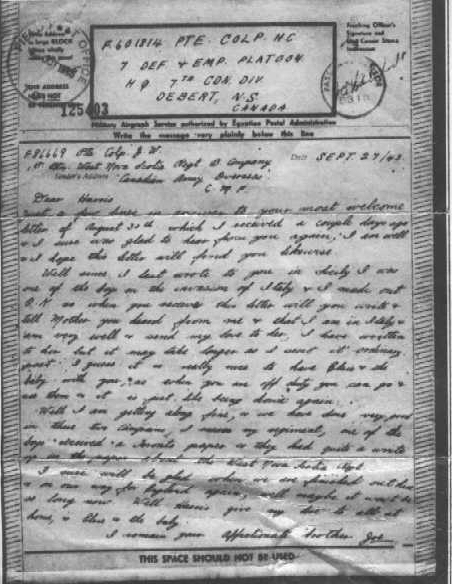 F601814 PTE. COLP. H.C
7 DEF & EMP. PLATOON
H Q 7TH CDN. DIV
DEBERT, N.S.
CANADA
125403
Military Airgraph Service authorized by Egyptian Postal Administration
Write the message very plainly below this line
F86669 Pte Colp. J. W. Date SEPT. 27/43
West Nova Scotia Regt B Company
Sender's Address Canadian Army Overseas
C. M. F.
Dear Harris
Just a few lines in answer to your most welcome
letter of August 30th which I received a couple days ago
& I sure was glad to hear from you again, I am well
& I hope this letter will find you likewise.
Well since I last wrote to you in Sicily I was
one of the boys on the invasion of Italy & I made out
O.K. so when you receive this letter will you write &
tell Mother you heard from me & that I am in Italy &
am very well & send my love to her, I have written
to her but it may take longer as I sent it ordinary
post. I guess it is really nice to have & the
baby with you, as when you are off duty you can go &
see them & it is just like being home again.
Well I am getting along fine, & we have done very good
in these two campaigns, I mean my regiment, one of the
boys received a Toronto paper & they had quite a write
up in the paper about the West Nova Scotia Regt.
I sure will be glad when we are finished out here
& on our way for again, well maybe it won't be
so long now. Well Harris give my love to all at
home, & & the baby.
I remain your Affectionate brother Joe
THIS SPACE SHOULD NOT BE USED